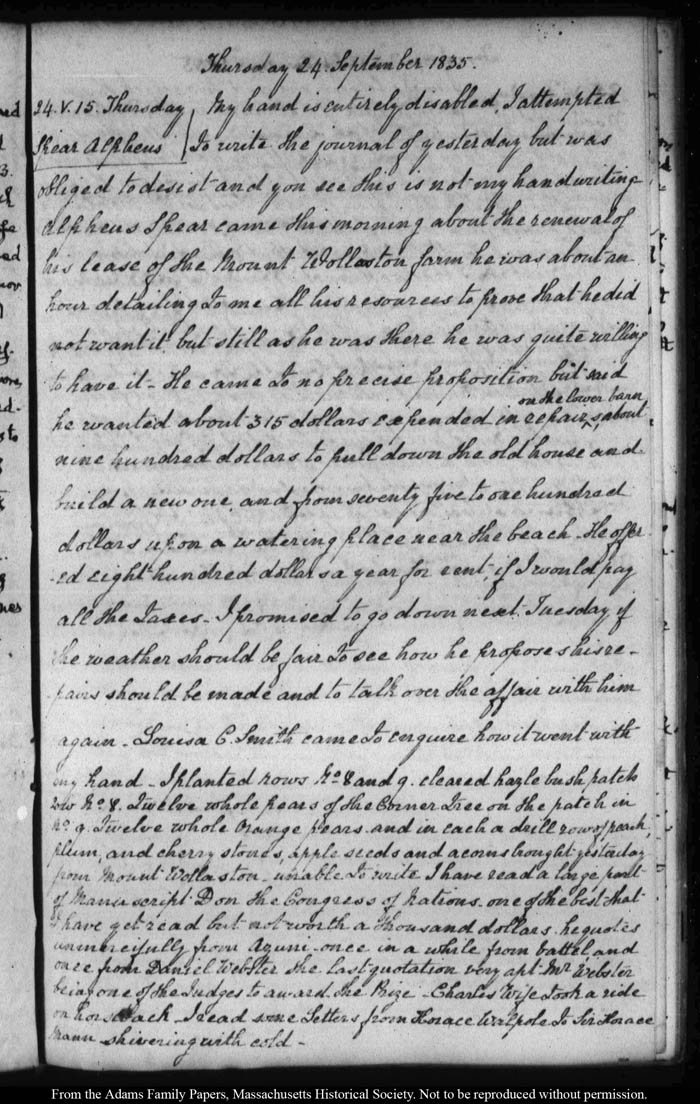 Thursday 24. September 1835.
24. V. 15. Thursday } My hand is entirely disabled, I attempted
Spear Alpheus } to write the journal of yesterday but was
obliged to desist and you see this is not my handwriting
Alpheus Spear came this morning about the renewal of
his lease of the Mount Wollaston farm he was about an
hour detailing to me all his resources to prove that he did
not want it, but still as he was there he was quite willing
to have it - He came to no precise proposition but said
on the lower barn
he wanted about 315 dollars expended in repairs, about
nine hundred dollars to pull down the old house and
build a new one, and from seventy five to one hundred
dollars upon a watering place near the beach. He offer
-ed eight hundred dollars a year for rent, if I would pay
all the Taxes. I promised to go down next Tuesday if
the weather should be fair to see how he proposes his re-
-pairs should be made and to talk over the affair with him
again. Louisa C. Smith came to enquire how it went with
my hand. I planted rows No. 8 and 9. cleared hazle bush patch
row No. 8. Twelve whole pears of the Corner Tree on the patch in
No. 9. Twelve whole Orange pears. and in each a drill row of peach,
plum, and cherry stones, apple seeds and acorns bought yesterday
from Mount Wollaston. unable to write I have read a large part
of Manuscript D on the Congress of Nations. one of the best that
I have yet read but not worth a thousand dollars. he quotes
unmercifully from Azuni. once in a while from Vattel and
once from Daniel Webster the last quotation very apt Mr. Webster
being one of the Judges to award the Prize. Charles' Wife took a ride
on horseback. I read some Letters from Horace Walpole to Sir Horace
Mann shivering with cold -
From the Adams Family Papers, Massachusetts Historical Society. Not to be reproduced without permission.